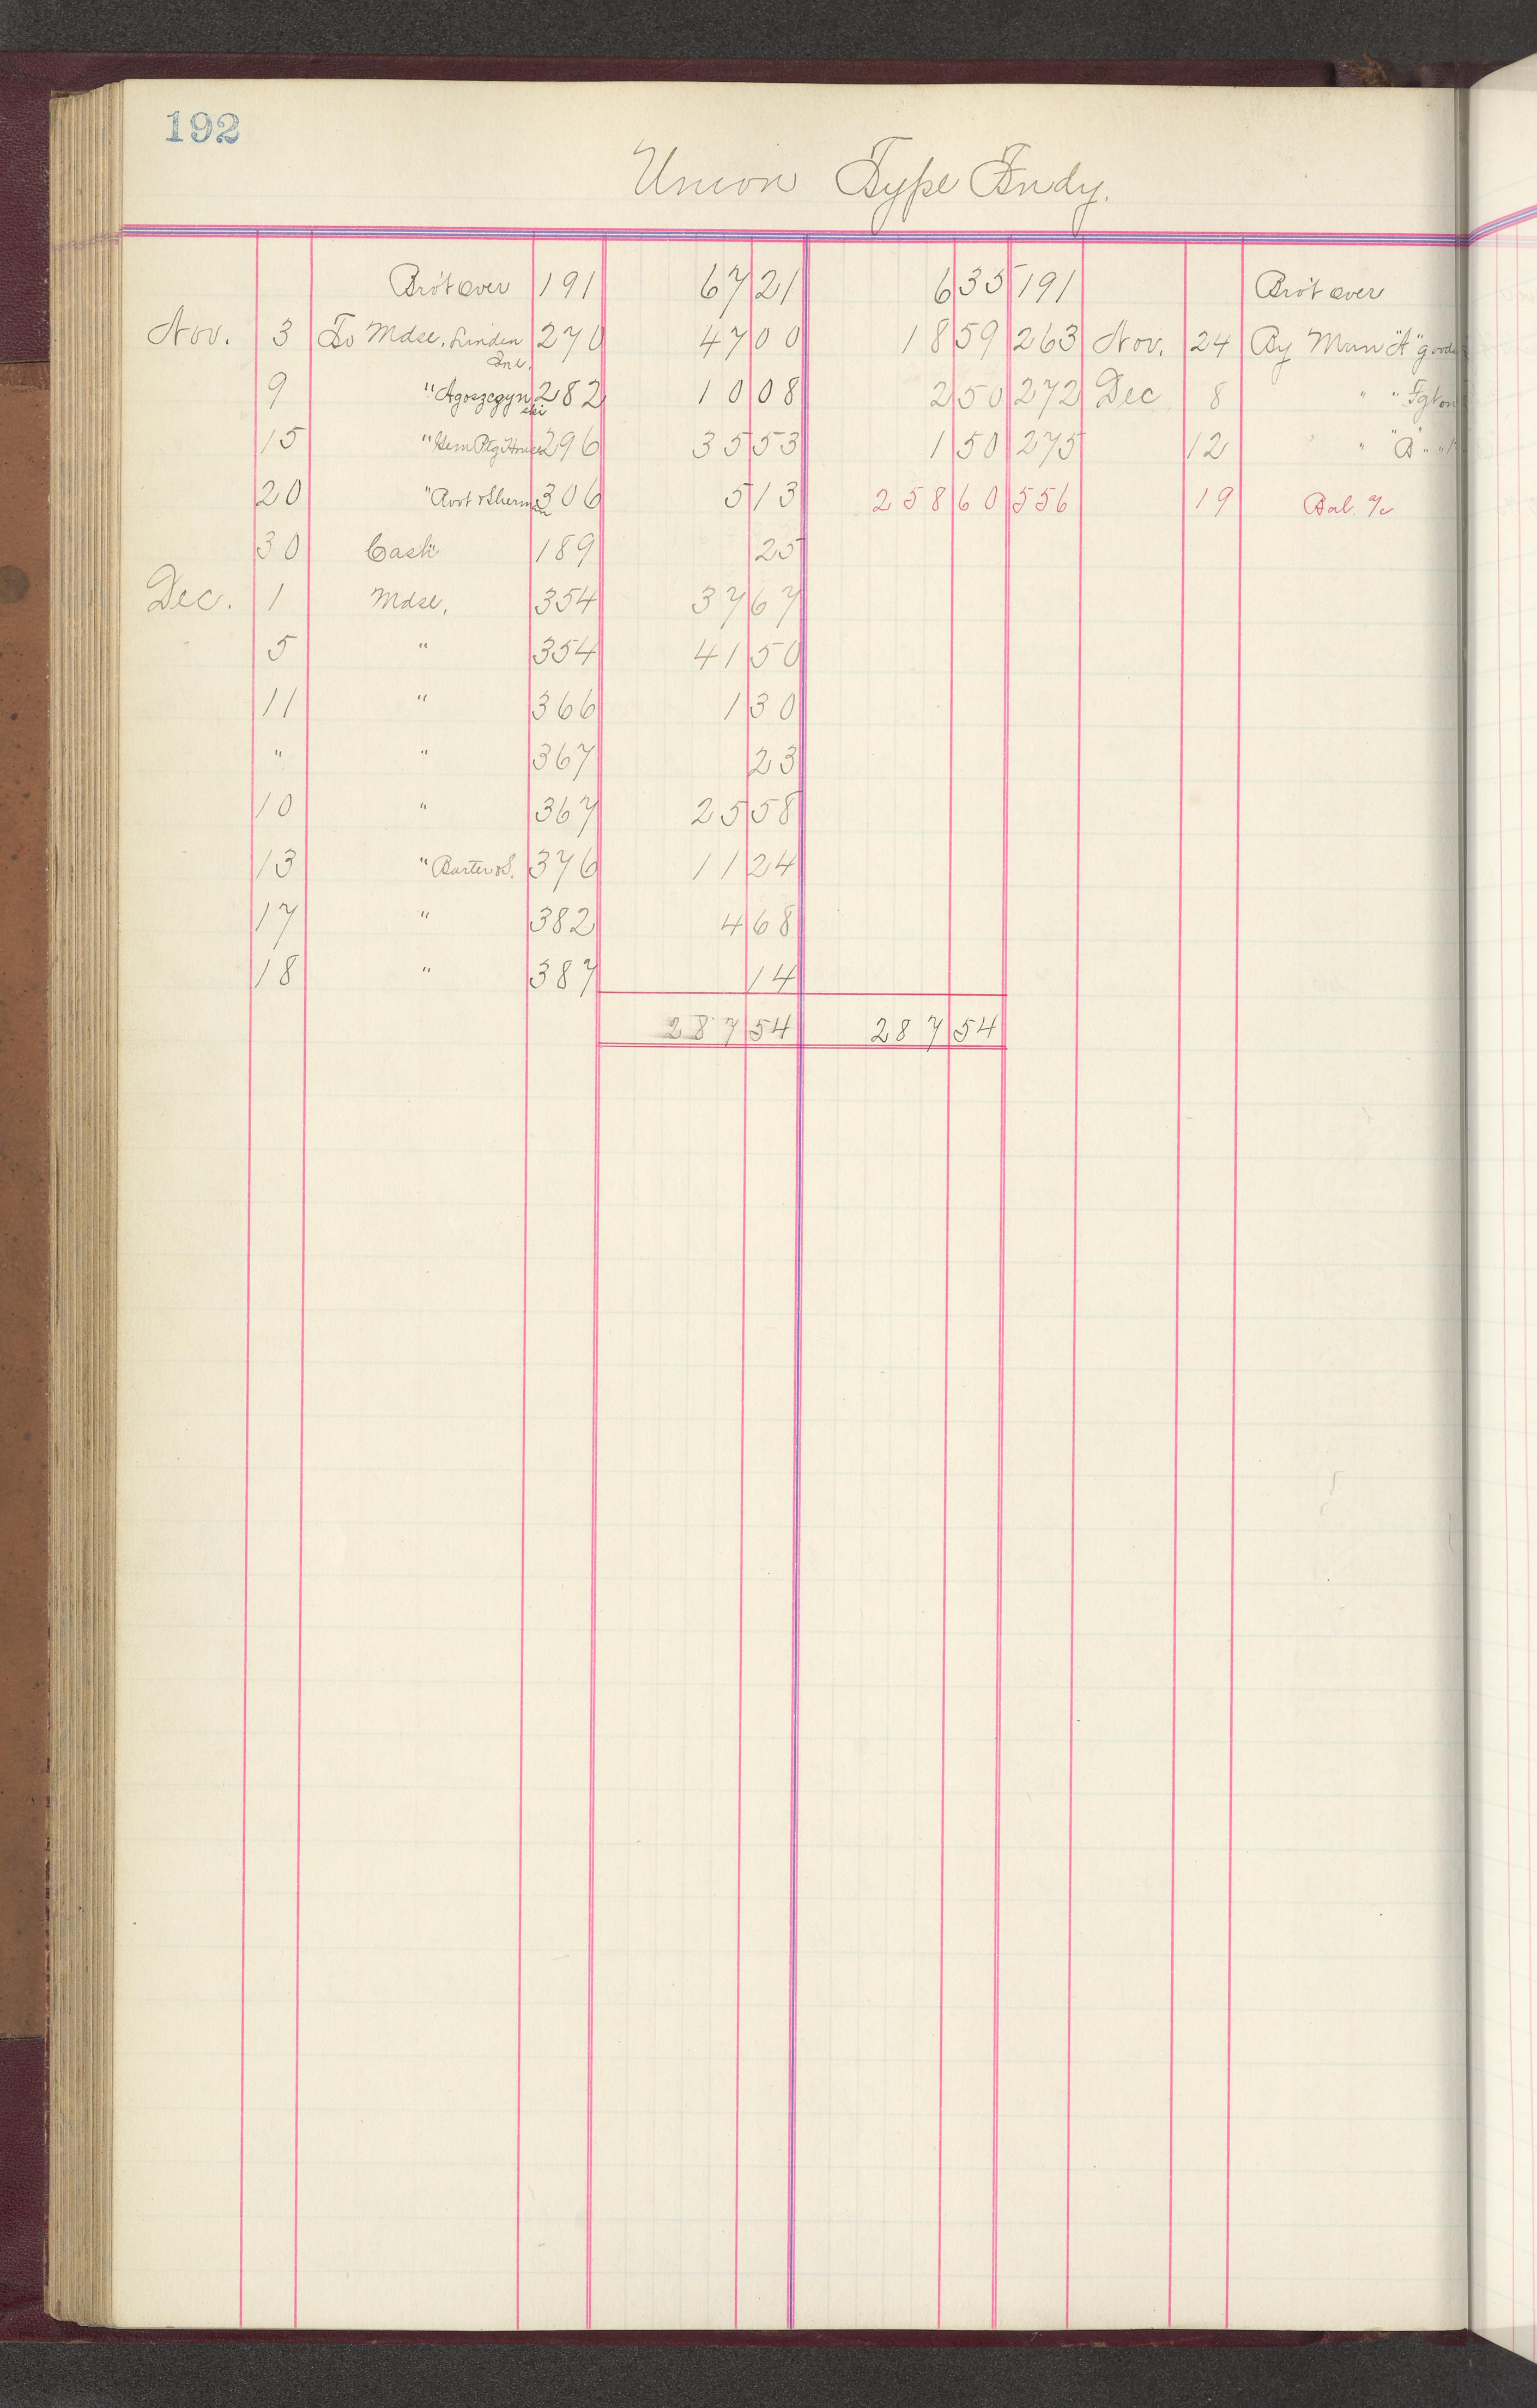 192
Union Type Fndy.
Bro't over 191 67 21 6 35 191 Bro't over
Nov. 3 To Mdse. Linden 270 47 00 18 59 263 Nov. 24 By Mdse "A" goods
9 " Agoszczyn 282 10 08 2 50 272 Dec 8 " "
ski
15 " Hem Ptg House 296 35 53 1 50 275 12 " "
20 " Root & Sherman 306 5 13 258 60 556 19 Bal. %
30 Cash 189 25
Dec. 1 Mdse. 354 37 67
5 " 354 41 50
11 " 366 1 30
" " 367 23
10 " 367 25 58
13 " Barter & S. 376 11 24
17 " 382 4 68
18 " 387 14
287 54 287 54